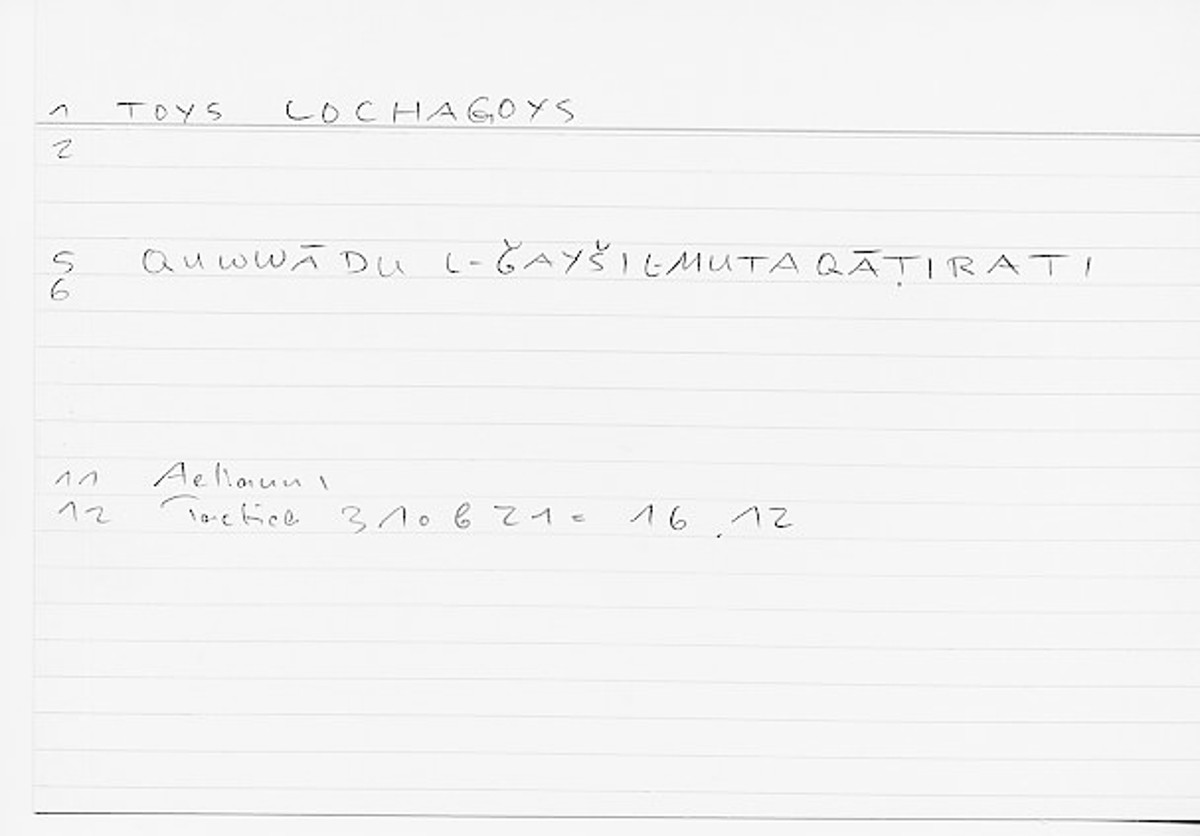 1 TOYS LOCHAGOYS
2
5 QUWWĀDU L-ǦAYŠI L-MUTAQĀṬIRATI
6
11 Aeliani
12 Tactica 310 b 21 = 16.12